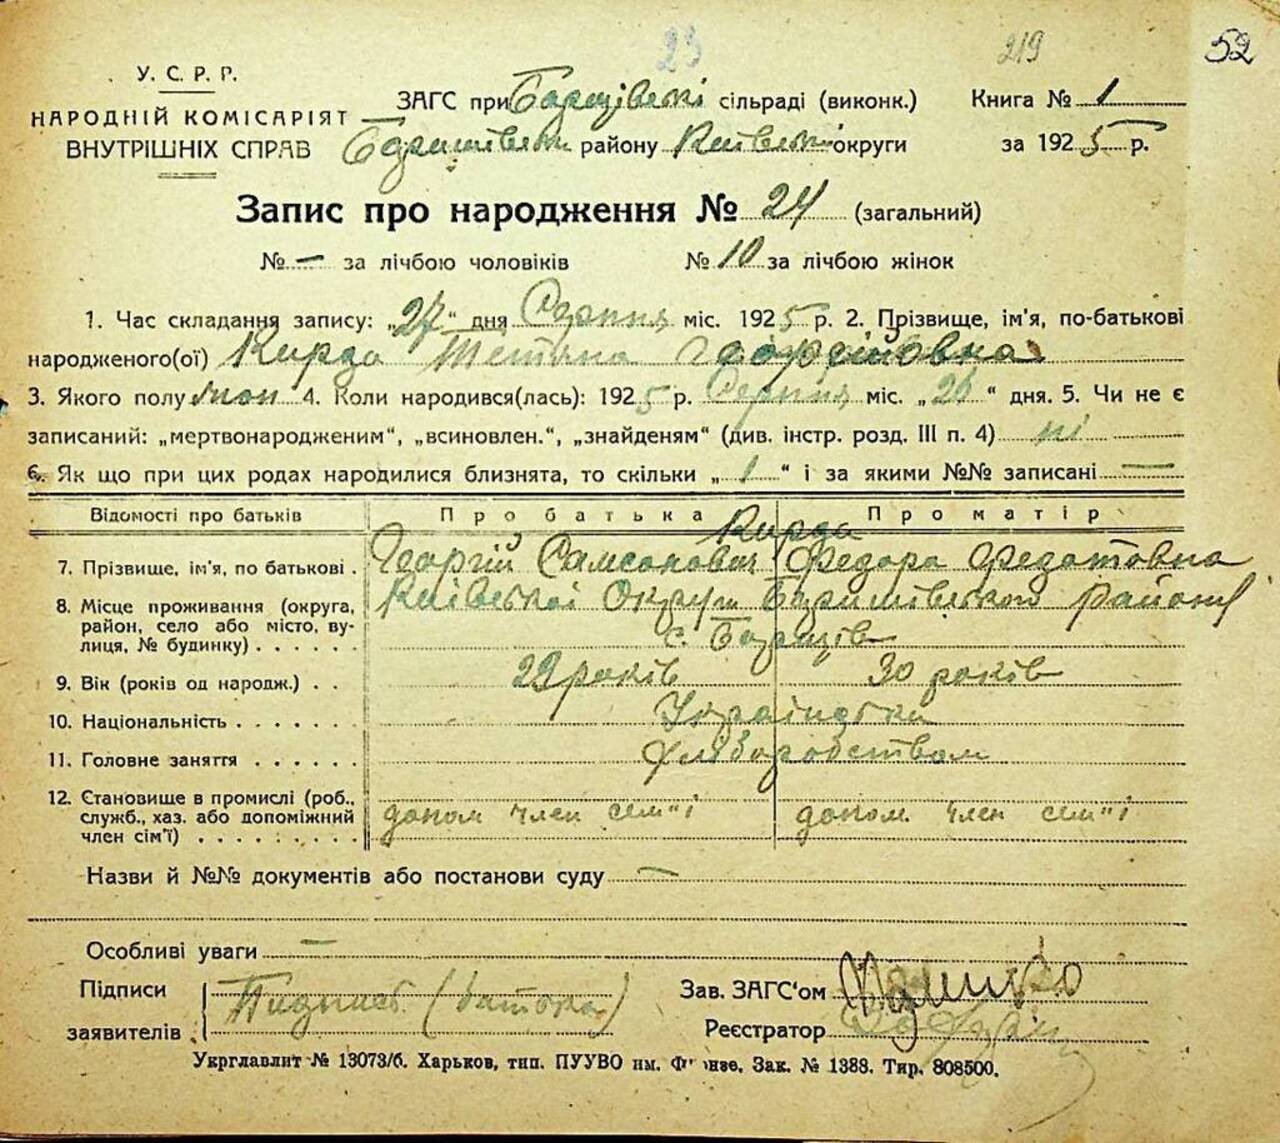 23 219 52
У. С. Р. Р.
НАРОДНІЙ КОМІСАРІЯТ
ВНУТРІШНІХ СПРАВ
ЗАГС при Борщівській сільраді (виконк.) Книга № 1
району Київської округи за 1925 р.
Запис про народження № 24 (загальний)
№ — за лічбою чоловіків № 10 за лічбою жінок
1. Час складання запису: „27“ дня Серпня міс. 1925 р. 2. Прізвище, ім'я, по-батькові
народженого(ої) Кирда Тетяна Георгіївна
3. Якого полу жон 4. Коли народився(лась): 1925 р. Серпня міс. „26“ дня. 5. Чи не є
записаний: „мертвонародженим“, „всиновлен.“, „знайденям“ (див. інстр. розд. III п. 4) ні
6. Як що при цих родах народилися близнята, то скільки „1“ і за якими №№ записані —
Відомості про батьків Про батька Про матір
Кирда
7. Прізвище, ім'я, по батькові . Георгій Самсонович Федора Федотовна
8. Місце проживання (округа, район, село або місто, вулиця, № будинку) . . . . . . Київської Округи району
с. Борщів
9. Вік (років од народж.) . . 29 років 30 років
10. Національність . . . . . . . Українська
11. Головне заняття . . . . . . Хліборобством
12. Становище в промислі (роб., служб., хаз. або допоміжний член сім'ї) . . . . . . . . . допом член сем"ї допом. член сем"ї
Назви й №№ документів або постанови суду —
Особливі уваги —
Підписи
заявителів Подпись (батька)
Зав. ЗАГС'ом
Реєстратор
Укрглавлит № 13073/б. Харьков, тип. ПУУВО им. Фрунзе, Зак. № 1388. Тир. 808500.